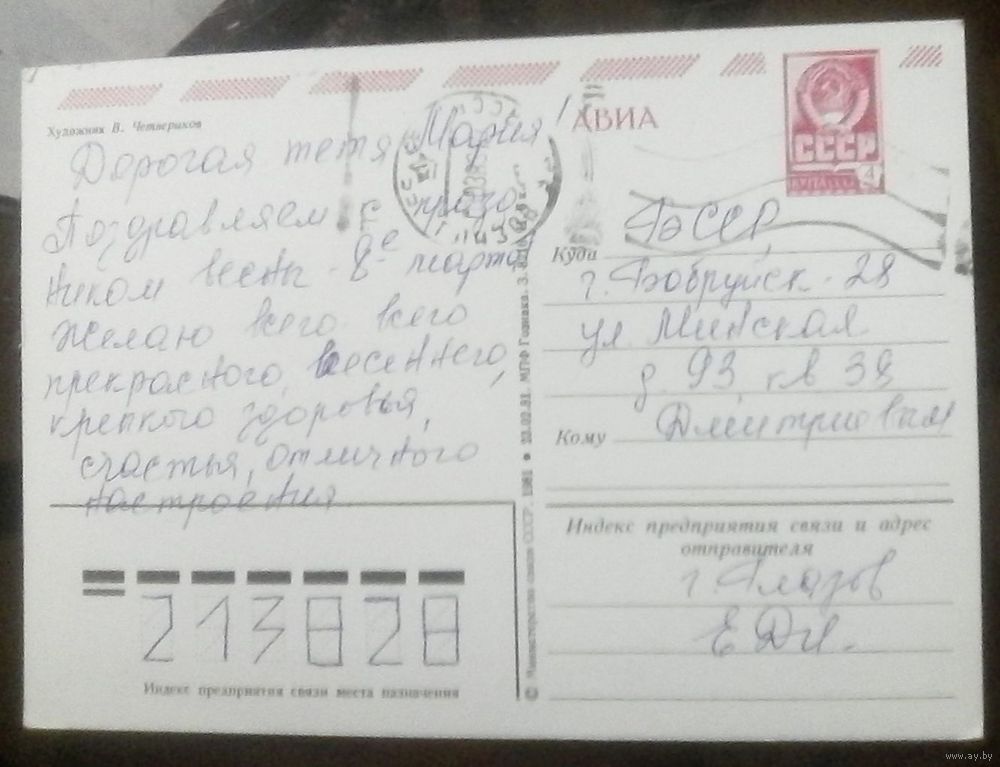 Художник В. Четвериков
АВИА
СССР
4
Дорогая тетя Мария!
Поздравляем с празд
ником весны - 8е марта
Желаю всего всего
прекрасного, весеннего,
крепкого здоровья,
счастья, отличного
настроения.
213828
Индекс предприятия связи места назначения
© Министерство связи СССР. 1981 • 23.02.81. МПФ Гознака.
Куда
БССР
г. Бобруйск - 28
ул. Минская
д 93 кв 38
Кому Дмитриевым
Индекс предприятия связи и адрес
отправителя
г. Глазов
www.ay.by